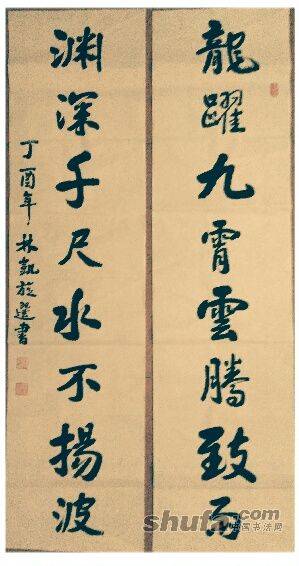 龍躍九霄雲騰致雨
渊深千尺水不揚波
丁酉年林凱 選書
shufa.com
中国书法网